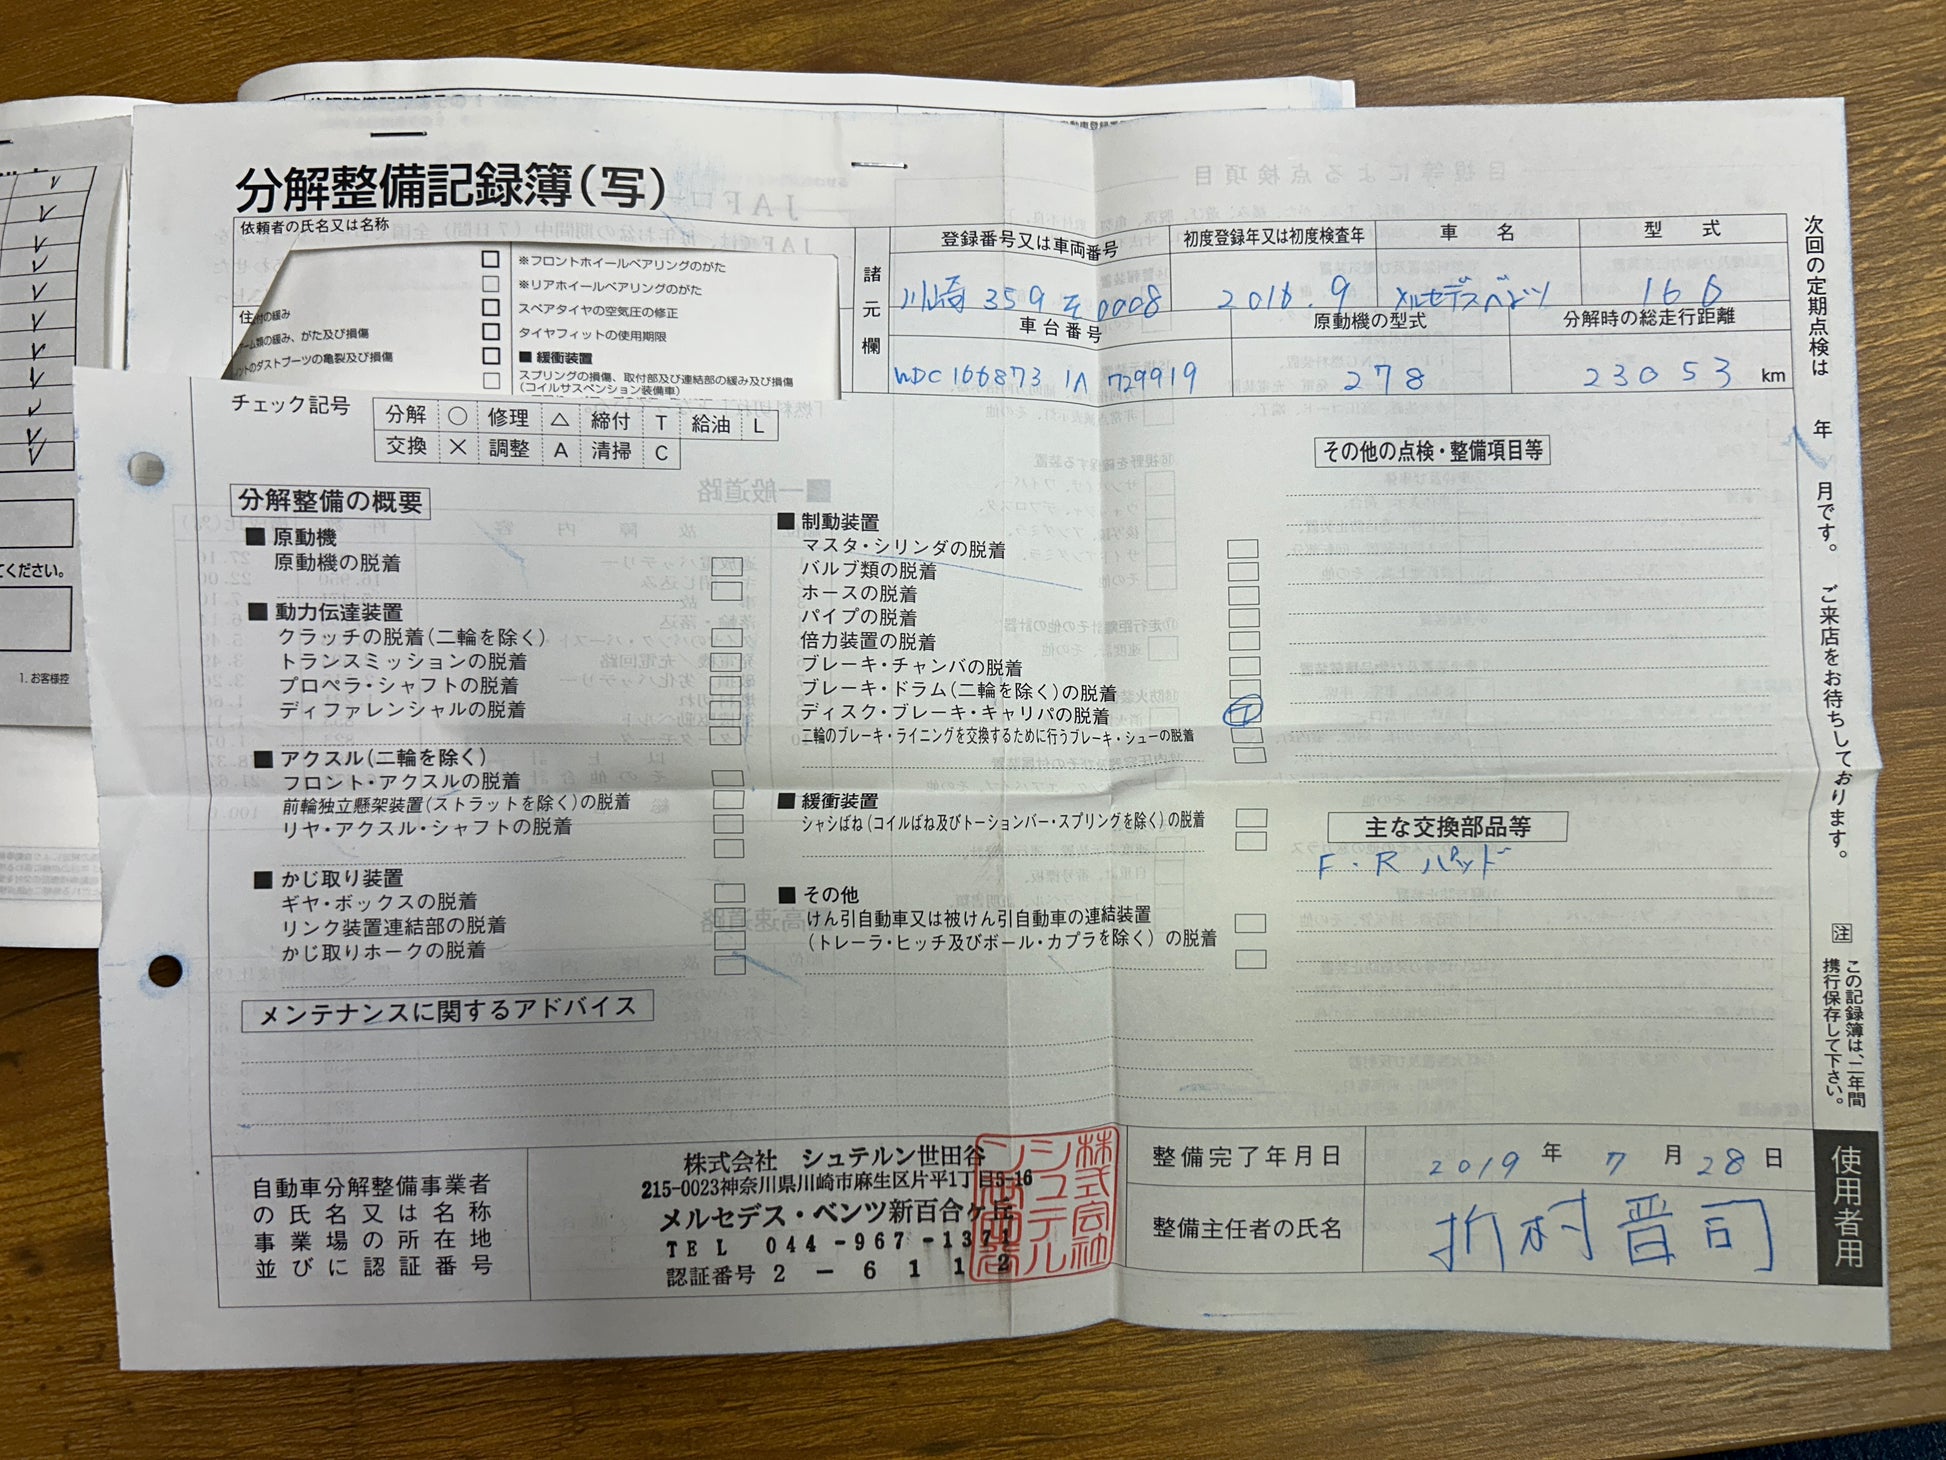 分解整備記録簿(写)
依頼者の氏名又は名称
※フロントホイールベアリングのがた
※リアホイールベアリングのがた
スペアタイヤの空気圧の修正
タイヤフィットの使用期限
■ 緩衝装置
スプリングの損傷、取付部及び連結部の緩み及び損傷
(コイルサスペンション装備車)
住
付の緩み
アーム類の緩み、がた及び損傷
ントのダストブーツの亀裂及び損傷
諸元欄
登録番号又は車両番号
川崎 359 モ 0008
初度登録年又は初度検査年
2016.9
車名
メルセデスベンツ
型式
166
車台番号
WDC 166873 1A 729919
原動機の型式
278
分解時の総走行距離
23053 km
チェック記号
分解 ○ 修理 △ 締付 T 給油 L
交換 × 調整 A 清掃 C
分解整備の概要
■ 原動機
原動機の脱着
■ 動力伝達装置
クラッチの脱着(二輪を除く)
トランスミッションの脱着
プロペラ・シャフトの脱着
ディファレンシャルの脱着
■ アクスル(二輪を除く)
フロント・アクスルの脱着
前輪独立懸架装置(ストラットを除く)の脱着
リヤ・アクスル・シャフトの脱着
■ かじ取り装置
ギヤ・ボックスの脱着
リンク装置連結部の脱着
かじ取りホークの脱着
■ 制動装置
マスタ・シリンダの脱着
バルブ類の脱着
ホースの脱着
パイプの脱着
倍力装置の脱着
ブレーキ・チャンバの脱着
ブレーキ・ドラム(二輪を除く)の脱着
ディスク・ブレーキ・キャリパの脱着
二輪のブレーキ・ライニングを交換するために行うブレーキ・シューの脱着
■ 緩衝装置
シャシばね(コイルばね及びトーションバー・スプリングを除く)の脱着
■ その他
けん引自動車又は被けん引自動車の連結装置
(トレーラ・ヒッチ及びボール・カプラを除く)の脱着
その他の点検・整備項目等
主な交換部品等
F・R パッド
メンテナンスに関するアドバイス
自動車分解整備事業者
の氏名又は名称
事業場の所在地
並びに認証番号
株式会社 シュテルン世田谷
215-0023神奈川県川崎市麻生区片平1丁目5-16
メルセデス・ベンツ新百合ヶ丘
TEL 044-967-1371
認証番号 2-6112
整備完了年月日
2019年7月28日
整備主任者の氏名
折村晋司
次回の定期点検は 年 月です。ご来店をお待ちしております。
注 この記録簿は、二年間
携行保存して下さい。
使用者用
てください。
1. お客様控